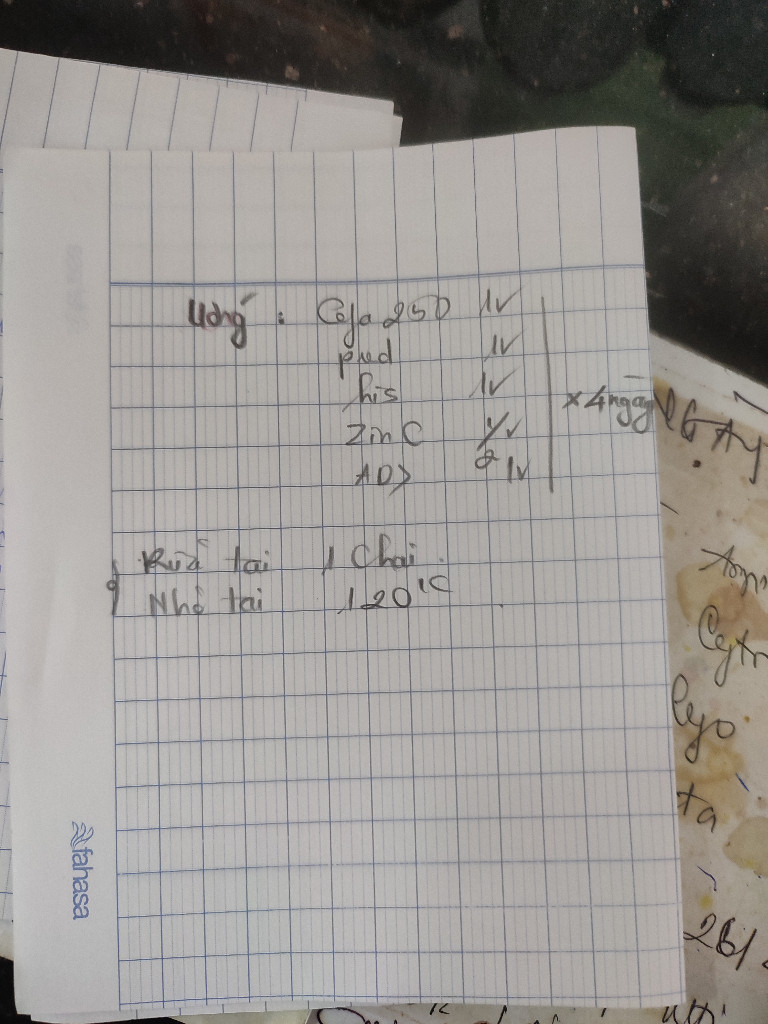 Uống : Cefa 250 1v
pred 1v
his 1v
Zin C 1/2v
AD> 1v
x 4 ngày
Rửa tai 1 Chai
Nhỏ tai 120
fahasa
NGÀY
lyo
tá
26/